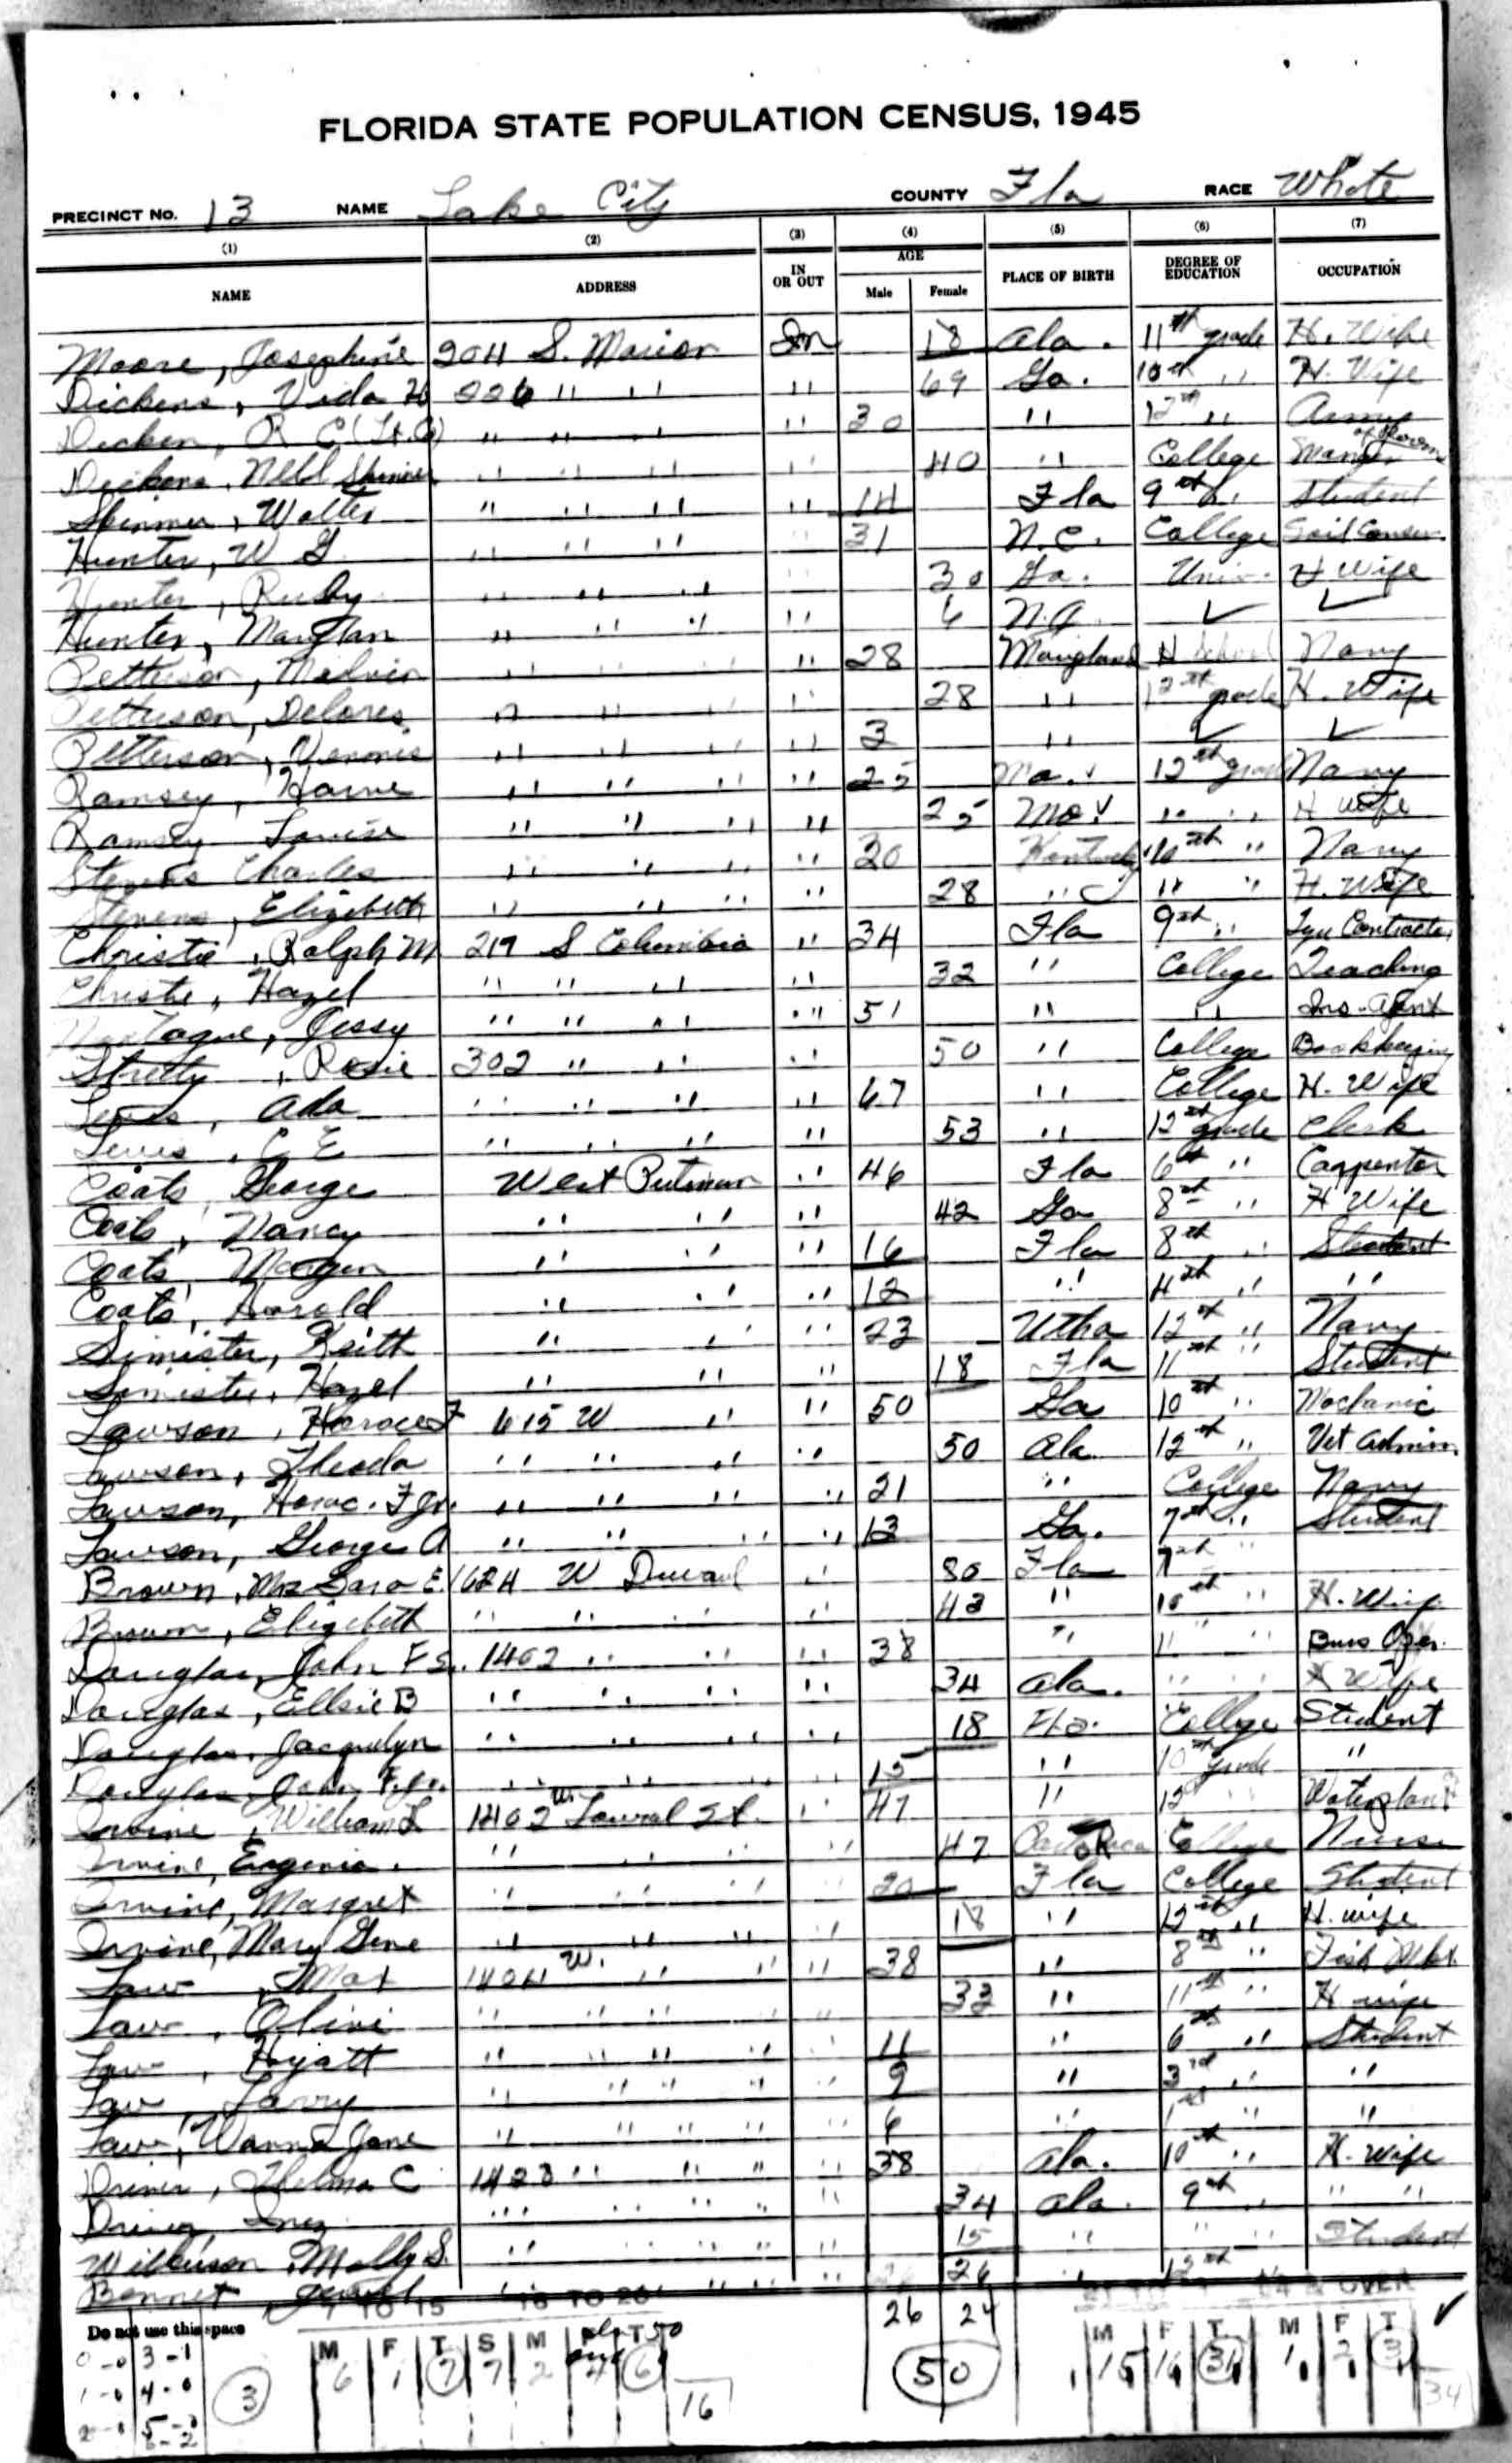 FLORIDA STATE POPULATION CENSUS, 1945
PRECINCT No. 13 NAME Lake City COUNTY Fla RACE White
(1) (2) (3) (4) (5) (6) (7)
NAME ADDRESS IN OR OUT AGE Male Female PLACE OF BIRTH DEGREE OF EDUCATION OCCUPATION
Moore, Josephine 2011 S. Marion In 18 Ala. 11th grade H. Wife
Dickens, Vida H 206 " " " 69 Ga. 10th " H. Wife
Dicken, R C (Lt. C) " " " " 30 " 12th " Army
Dickens, Nell " " " " 40 " College
Skinner, Walter " " " " 14 Fla 9th " Student
Hunter, W G " " " " 31 N.C. College Soil Conser.
Hunter, Ruby " " " " 30 Ga. Univ. H Wife
Hunter, " " " " 6 ✓ ✓
Petterson, Melvin " " " " 28 Maryland H School Navy
Petterson, Delores " " " " 28 " 12th grade H. Wife
Petterson, " " " " 3 " ✓ ✓
Ramsey, " " " " 25 12th grade Navy
Ramsey Louise " " " " 25 Mo. " " H wife
Stevens Charles " " " " 30 Kentucky 10th " Navy
Stevens, Elizabeth " " " " 28 " " " H. Wife
Christie, Ralph M 219 S Columbia " 34 Fla 9th " Contractor
Christie, Hazel " " " " 32 " College Teaching
Jessy " " " " 51 " " Ins. Agent
Rosie 302 " " " 50 " College Bookkeeping
Lewis, Ada " " " " 67 " College H. Wife
Lewis, C E " " " " 53 " 12th grade Clerk
Coats, George West Putnam " 46 Fla 6th " Carppenter
Coats, Nancy " " " 42 Ga 8th " H Wife
Coats, Morgan " " " 16 Fla 8th " Student
Coats, Harold " " " 12 " 4th " "
Simister, Keith " " " 23 Utha 12th " Navy
Simister, Hazel " " " 18 Fla 11th " Student
Lawson, Horace F 615 W " " 50 Ga 10th " Mechanic
Lawson, Theoda " " " " 50 Ala 12th " Vet Admin.
Lawson, Horac. F Jr. " " " " 21 " College Navy
Lawson, George A " " " " 13 Ga. 7th " Student
Brown, Mrs Sara E. 1624 W Duval " 80 Fla 7th "
Brown, Elizabeth " " " " 43 " 10th " H. Wife
Douglas, John F S. 1402 " " " 38 " 11 " Buss Oper.
Douglas, Ellsie B " " " " 34 Ala. " " H Wife
Douglas, Jacquelyn " " " " 18 Fla. College Student
Douglas, John F. Jr. " " " " 15 " 10th grade "
Irvine, William L 1402 W. Laurel St. " 47 " 12 " Waterplant
Irvine, Eugenia. " " " " 47 College Nurse
Irvine, Margret " " " " 20 Fla College Student
Irvine, Mary Gene " " " " 18 " 12th " H. wife
Law, Max 1404 W. " " " 38 " 8th " Fish Mkt.
Law, " " " " 33 " 11th " H wife
Law, Hyatt " " " " 11 " 6th " Student
Law, Larry " " " " 9 " 3rd " "
Law, Wanna Jane " " " " 6 " 1st " "
Driver, Thelma C 1423 " " " " 38 Ala. 10th " H. Wife
Driver, Inez " " " " " 34 Ala. 9th " " "
Wilkinson, Molly S. " " " " " 15 " " " Student
Bennet, " " " " " 26 " 12th
7 TO 15 16 TO 20 26 24 & OVER
Do not use this space
26 24
M F T S M F T M F T M F T ✓
0-0 3-1 6 1 7 7 2 6 50 15 16 31 1 2 3
1-0 4-0 3 16 34
2-0 5-2